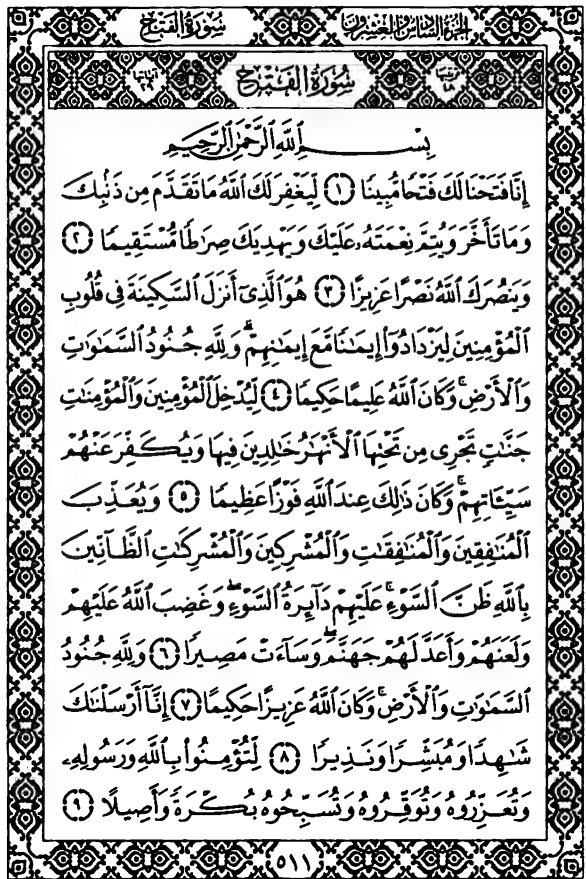 سُورَةُ الفَتْحِ الجُزْءُ السَّادِسُ وَالعِشْرُونَ
ترتيبها ٤٨ سُورَةُ الفَتْحِ آياتها ٢٩
بِسْمِ ٱللَّهِ ٱلرَّحْمَٰنِ ٱلرَّحِيمِ
إِنَّا فَتَحْنَا لَكَ فَتْحًا مُّبِينًا ١ لِّيَغْفِرَ لَكَ ٱللَّهُ مَا تَقَدَّمَ مِن ذَنۢبِكَ
وَمَا تَأَخَّرَ وَيُتِمَّ نِعْمَتَهُۥ عَلَيْكَ وَيَهْدِيَكَ صِرَٰطًا مُّسْتَقِيمًا ٢
وَيَنصُرَكَ ٱللَّهُ نَصْرًا عَزِيزًا ٣ هُوَ ٱلَّذِىٓ أَنزَلَ ٱلسَّكِينَةَ فِى قُلُوبِ
ٱلْمُؤْمِنِينَ لِيَزْدَادُوٓا۟ إِيمَٰنًا مَّعَ إِيمَٰنِهِمْ ۗ وَلِلَّهِ جُنُودُ ٱلسَّمَٰوَٰتِ
وَٱلْأَرْضِ ۚ وَكَانَ ٱللَّهُ عَلِيمًا حَكِيمًا ٤ لِّيُدْخِلَ ٱلْمُؤْمِنِينَ وَٱلْمُؤْمِنَٰتِ
جَنَّٰتٍ تَجْرِى مِن تَحْتِهَا ٱلْأَنْهَٰرُ خَٰلِدِينَ فِيهَا وَيُكَفِّرَ عَنْهُمْ
سَيِّـَٔاتِهِمْ ۚ وَكَانَ ذَٰلِكَ عِندَ ٱللَّهِ فَوْزًا عَظِيمًا ٥ وَيُعَذِّبَ
ٱلْمُنَٰفِقِينَ وَٱلْمُنَٰفِقَٰتِ وَٱلْمُشْرِكِينَ وَٱلْمُشْرِكَٰتِ ٱلظَّآنِّينَ
بِٱللَّهِ ظَنَّ ٱلسَّوْءِ ۚ عَلَيْهِمْ دَآئِرَةُ ٱلسَّوْءِ ۖ وَغَضِبَ ٱللَّهُ عَلَيْهِمْ
وَلَعَنَهُمْ وَأَعَدَّ لَهُمْ جَهَنَّمَ ۖ وَسَآءَتْ مَصِيرًا ٦ وَلِلَّهِ جُنُودُ
ٱلسَّمَٰوَٰتِ وَٱلْأَرْضِ ۚ وَكَانَ ٱللَّهُ عَزِيزًا حَكِيمًا ٧ إِنَّآ أَرْسَلْنَٰكَ
شَٰهِدًا وَمُبَشِّرًا وَنَذِيرًا ٨ لِّتُؤْمِنُوا۟ بِٱللَّهِ وَرَسُولِهِۦ
وَتُعَزِّرُوهُ وَتُوَقِّرُوهُ وَتُسَبِّحُوهُ بُكْرَةً وَأَصِيلًا ٩
٥١١